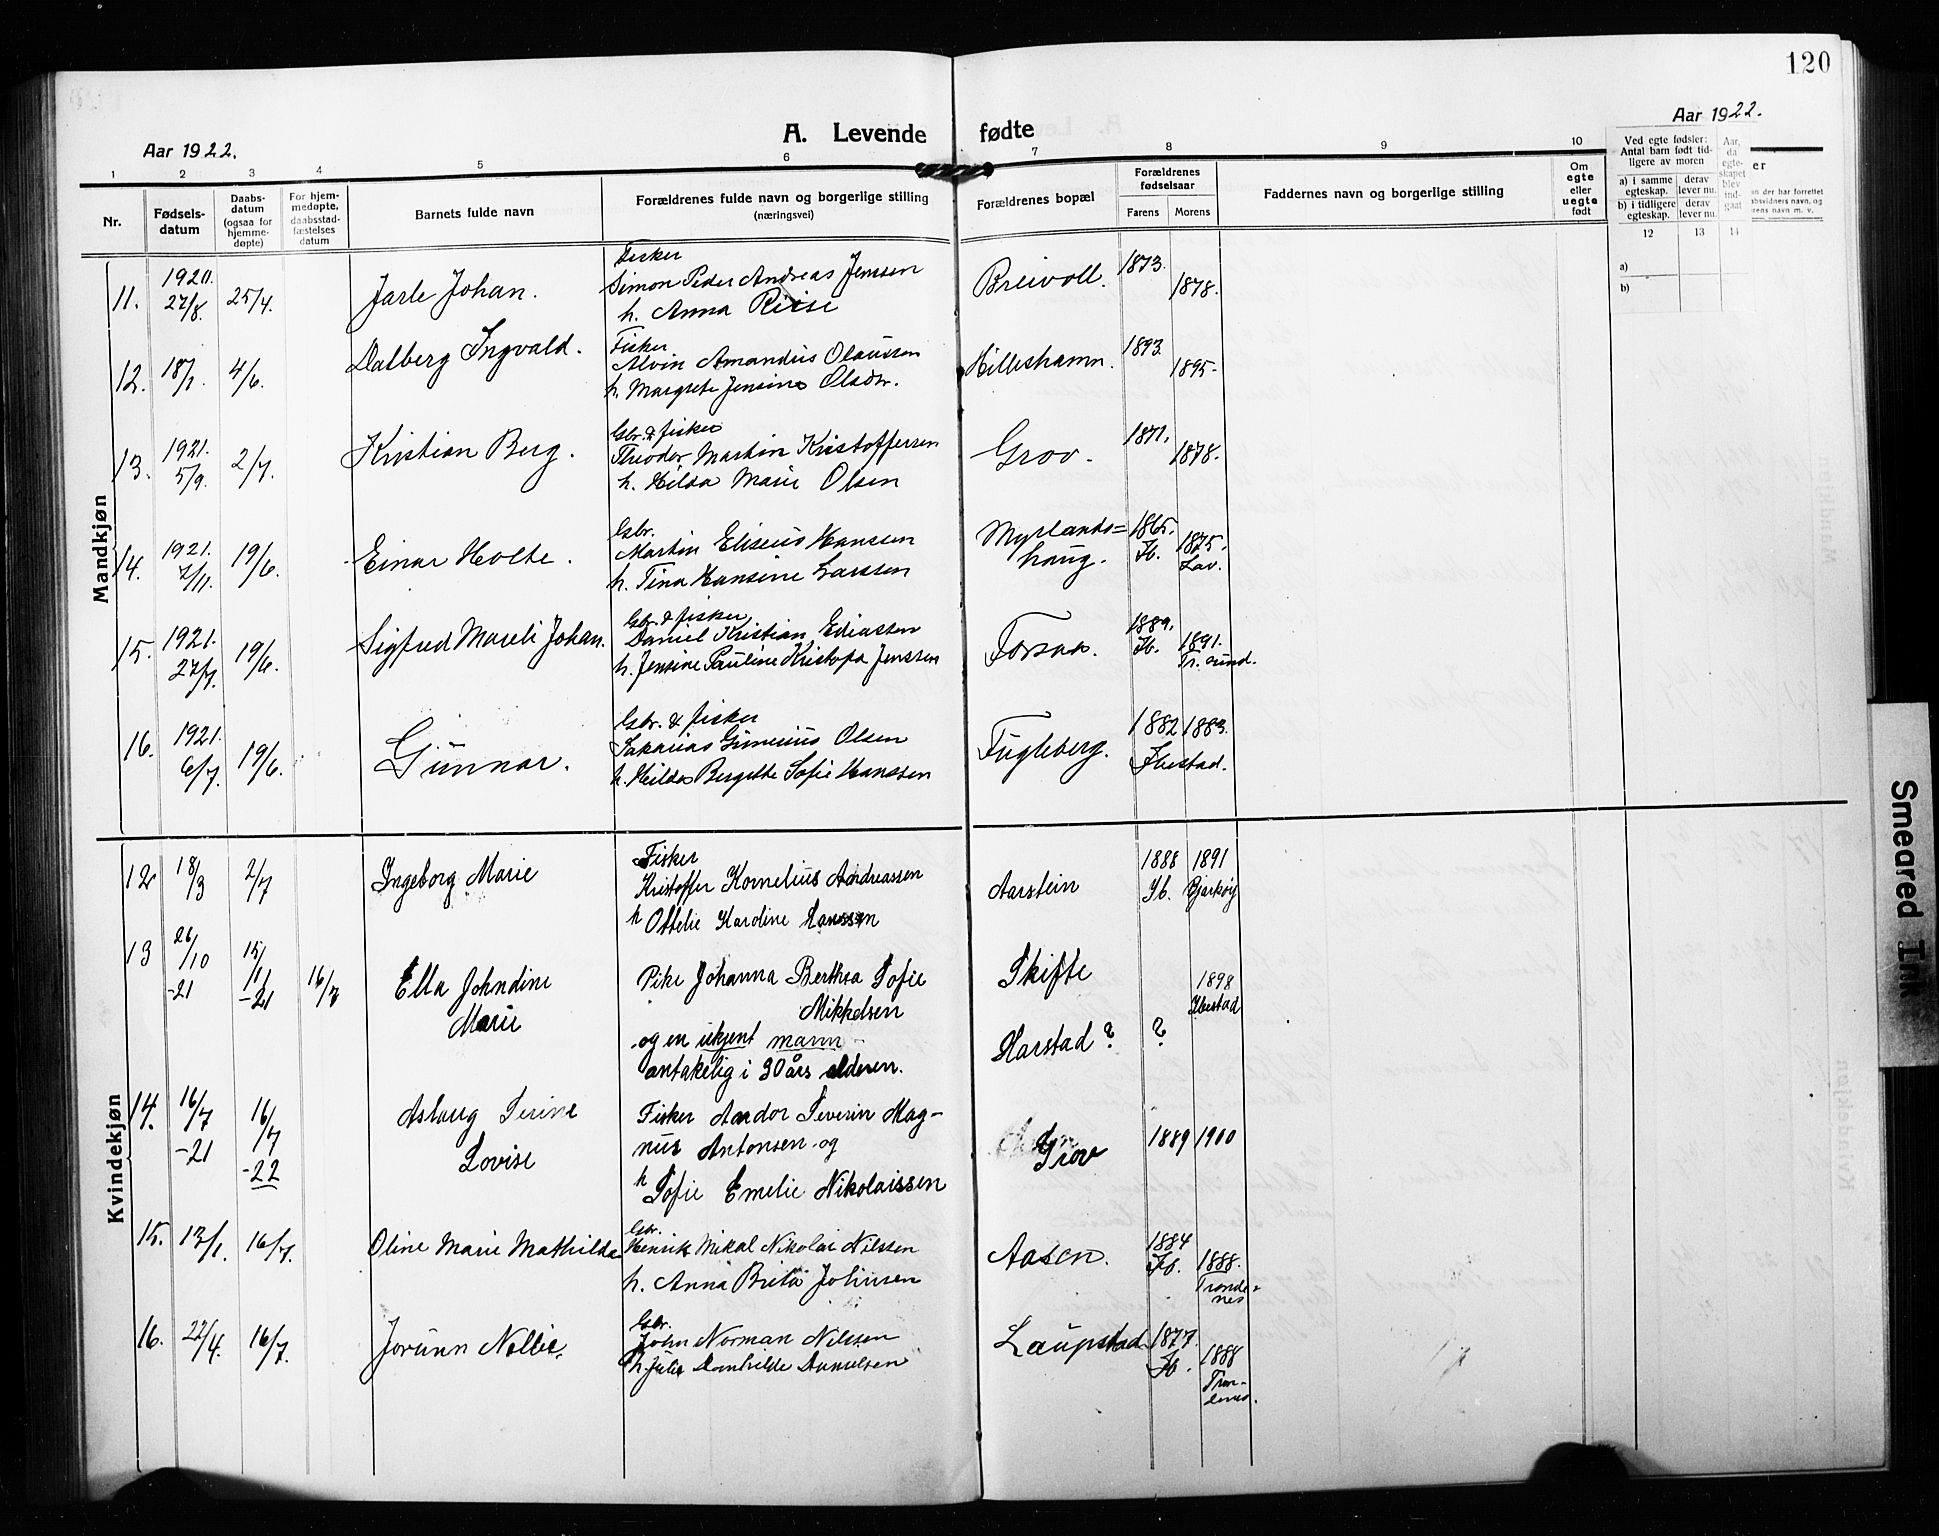 120
A. Levende fødte
Aar 1922.
Aar 1922.
1 2 3 4 5 6 7 8 9 10
Nr.
Fødsels-
datum
Daabs-
datum
(ogsaa for
hjemme-
døpte)
For hjem-
medøpte,
daabsstad-
fæstelses
datum
Barnets fulde navn
Forældrenes fulde navn og borgerlige stilling
(næringsvei)
Forældrenes bopæl
Forældrenes
fødselsaar
Farens Morens
Faddernes navn og borgerlige stilling
Om
egte
eller
uegte
født
Ved egte fødsler:
Antal barn født tid-
ligere av moren
a) i samme
egteskap.
derav
lever nu.
b) i tidligere
egteskap.
derav
lever nu.
Aar,
da
egte-
skapet
blev
ind-
gaat
er
12 13 14
a)
b)
Mandkjøn
11. 27/8. 25/4. Jarle Johan.
Fisker
Simon Peder Andreas Jenssen
h. Anna Riise
Breivoll. 1873. 1878.
12. 18/1. 4/6. Dalberg Ingvald.
Fisker
Alvin Amandus Olaussen
h. Margrete Jensine Olsdtr.
Hilleshamn. 1893. 1895.
13. 1921. 5/9. 2/7. Kristian Berg.
Gbr. & fisker
Theodor Martin Kristoffersen
h. Hilda Marie Olsen
Grov. 1871. 1878.
14. 1921. 7/11. 19/6. Einar Holte.
Gbr.
Martin Eliseus Hanssen
h. Tina Hansine Larssen
Myrlands=
haug. 1865. Ib. 1875. Lav.
15. 1921. 27/7. 19/6. Sigfred Mareli Johan.
Gbr. & fisker
Daniel Kristian Eliassen
h. Jensine Pauline Kristofa Jenssen
Forsaa. 1889. Ib. 1891. Tr.sund.
16. 1921. 6/7. 19/6. Gunnar.
Gbr. & fisker
Sakarias Olsen
h. Hilda Bergitte Sofie Hanssen
Fugleberg. 1882 1883.
Ibestad.
Kvindekjøn
12 18/3 2/7 Ingeborg Marie
Fisker
Kristoffer Kornelius Andreassen
h Ottelie Kardine Hanssen
Aarstein 1888 Ib. 1891 Bjarkøy
13 26/10 -21 15/11 -21 16/7 Ella Johndine
Marie
Pike Johanna Berthea Sofie
Mikkelsen
og en ukjent mann
antakelig i 30 års alderen.
Skifte 1898 Ibestad
Harstad? ?
14. 16/7 -21 16/7 -22 Aslaug Serine
Lovise
Fisker Andor Severin Mag-
nus Antonsen og
h Sofie Emelie Nikolaissen
Grov 1889 1900
15. 13/1. 16/7. Oline Marie Mathilde
Gbr.
Henrik Mikal Nikolai Nilssen
h. Anna Brita Johnsen
Aasen. 1884 Ib. 1888. Tronde-
nes
16. 22/4. 16/7. Jorunn Nellie.
Gbr.
John Norman Nilssen
h. Julie Domhilde Danielsen
Laupstad 1877. Ib. 1888 Tron-
denes.
Smeared Ink